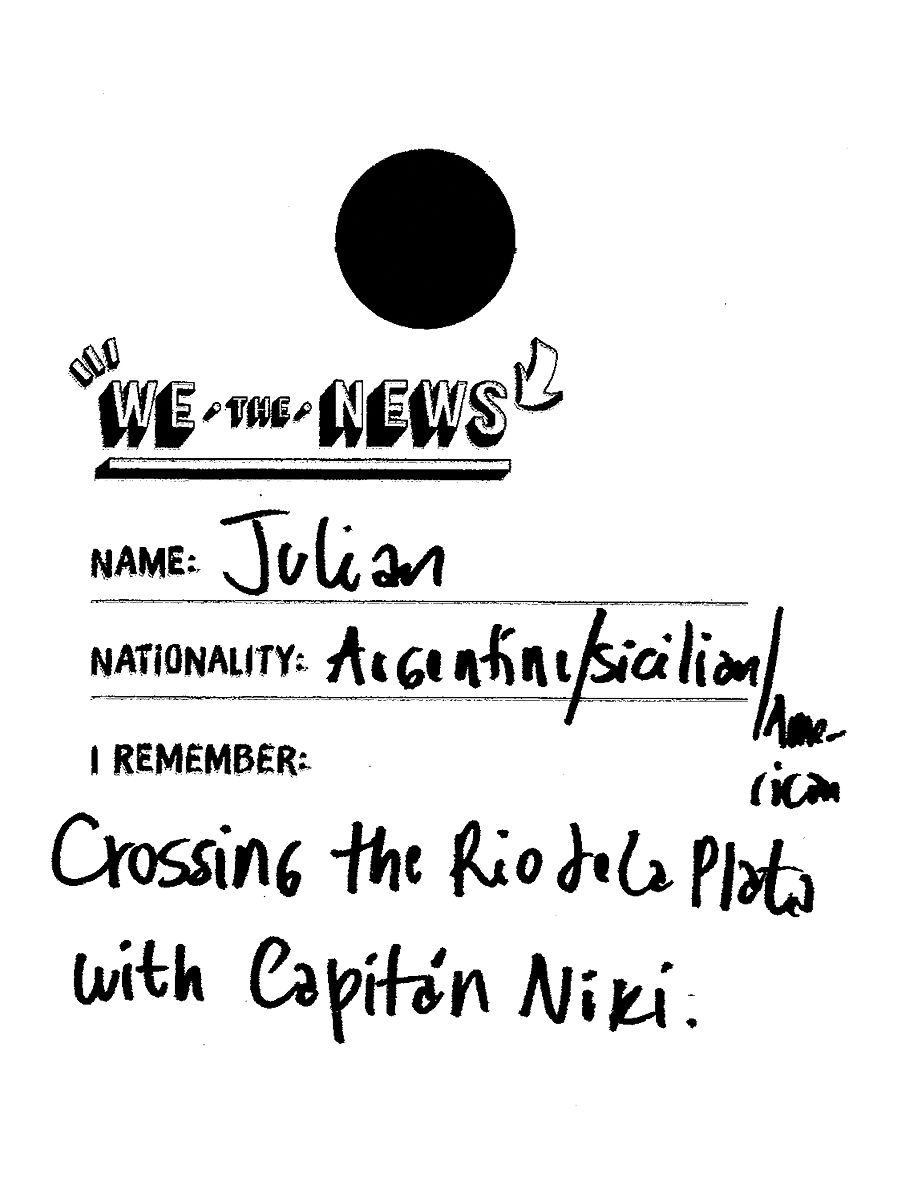 WE THE NEWS
NAME: Julian
NATIONALITY: Argentine/sicilian/Ame-
rican
I REMEMBER:
Crossing the Rio de la Plata
with Capitán Niki.